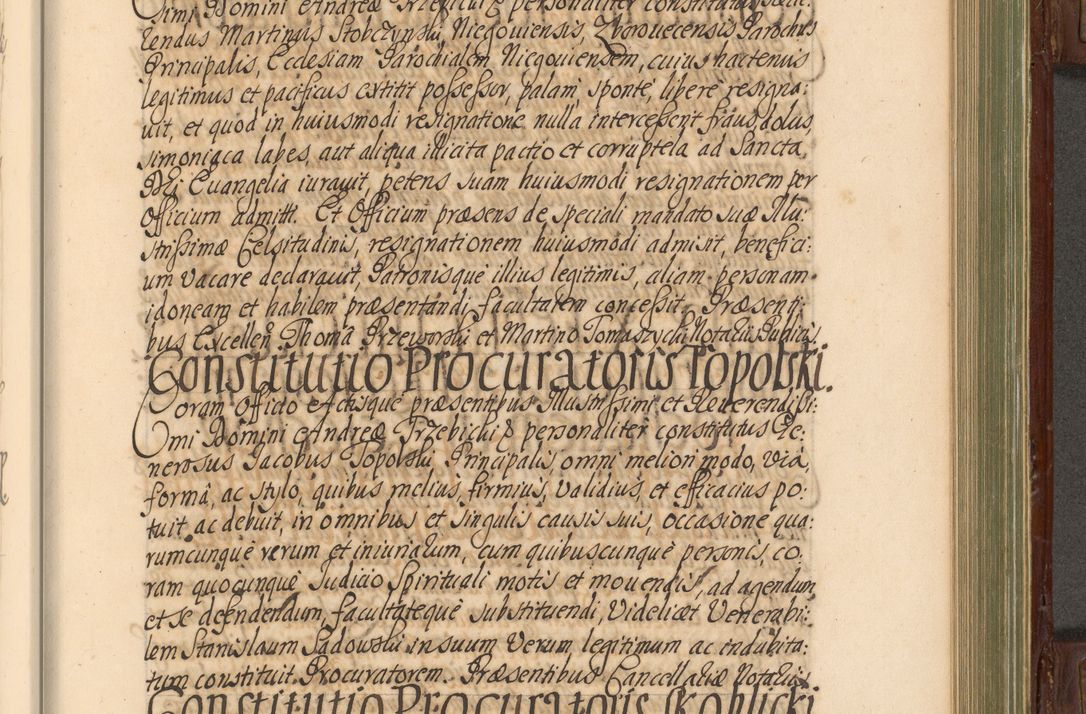 simi Domini Andreæ Trzebicki &c personaliter constitutus
rendus Martinus Stobczynski, Niegoviensis, Zborovecensis Parochus
Principalis, Ecclesiam Parochialem Niegoviensem, cuius hactenus
legitimus et pacificus extitit possessor, palam, sponte, libere resigna:
uit, et quod in huiusmodi resignatione nulla intercesserit fraus, dolus,
simoniaca labes, aut aliqua illicita pactio et corruptela ad Sancta
Dei Euangelia iurauit, petens suam huiusmodi resignationem per
Officium admitti. Et Officium præsens de speciali mandato suæ Illu:
strissimæ Celsitudinis, resignationem huiusmodi admisit, benefici:
um vacare declarauit, Patronisque illius legitimis, aliam personam
idoneam et habilem præsentandi, facultatem concessit. Præsenti:
bus Excellen Thoma Przeworski et Martino Tomaszycki Notariis Publicis.
Constitutio Procuratoris Topolski.
Coram Officio Actisque præsentibus Illustrissimi et Reverendissi:
mi Domini Andreæ Trzebicki &c personaliter constitutus Ge:
nerosus Jacobus Topolski, Principalis omni meliori modo, via,
forma, ac stylo, quibus melius, firmius, validius, et efficacius po:
tuit, ac debuit, in omnibus et singulis causis suis, occasione qua:
rumcunque rerum et iniuriarum, cum quibuscunque personis, co:
ram quocunque Judicio Spirituali motis et mouendis, ad agendum,
et se defendendum, facultateque substituendi, videlicet Venerabi:
lem Stanislaum Sadowski in suum verum legitimum ac indubita:
tum constituit Procuratorem. Præsentibus Cancellariæ Notariis
Constitutio Procuratoris Skoblicki